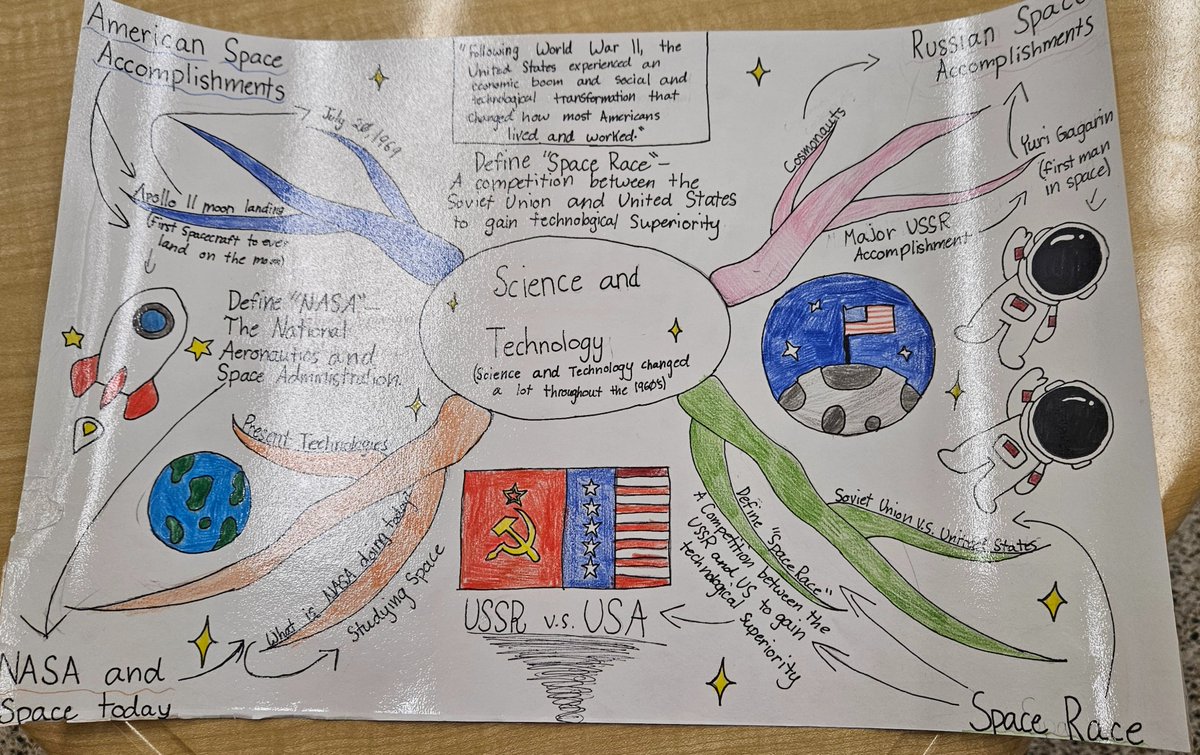 American Space
Accomplishments
July 20 1969
Apollo 11 moon landing
(First Spacecraft to ever
land on the moon)
"Following World War II, the
United States experienced an
economic boom and social and
technological transformation that
changed how most Americans
lived and worked."
Define "Space Race"–
A competition between the
Soviet Union and United States
to gain technological Superiority
Russian Space
Accomplishments
Cosmonauts
Yuri Gagarin
(first man
in space)
Major USSR
Accomplishment
Science and
Technology
(Science and Technology changed
a lot throughout the 1960s)
Define "NASA"–
The National
Aeronautics and
Space Administration.
Present Technologies
What is NASA doing today?
Studying Space
NASA and
Space today
USSR v.s. USA
Define "Space Race"
A Competition between the
USSR and US to gain
technological Superiority
Soviet Union v.s. United States
Space Race